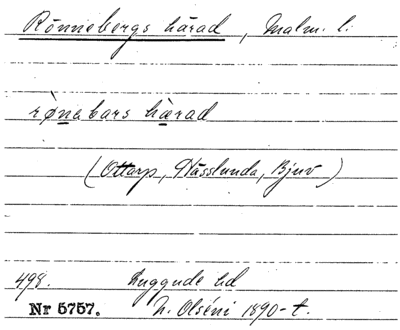 Rönnebergs härad, Malm. l.
rønabars hærad
(Ottarp, Hässlunda, Bjuv)
498. Luggude hd
Nr 5757. N. Olséni 1890-t.